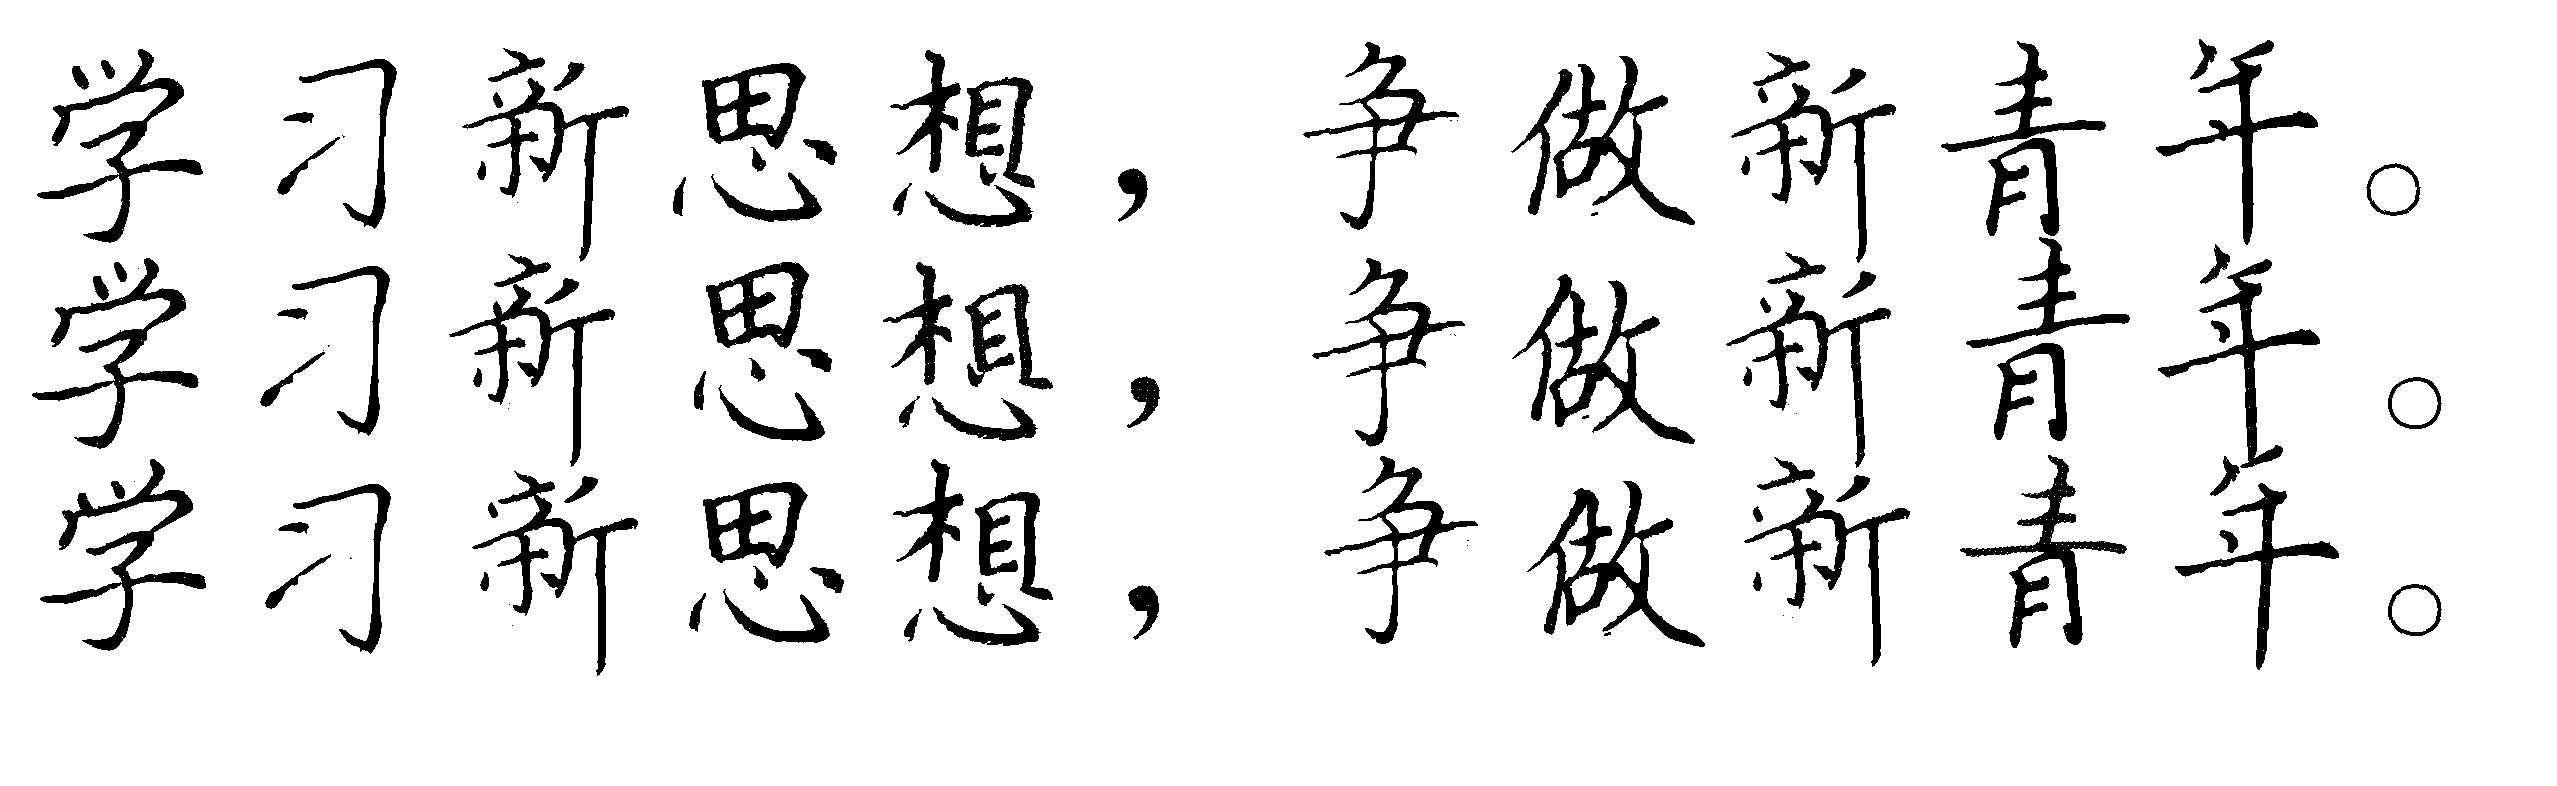 学习新思想，争做新青年。
学习新思想，争做新青年。
学习新思想，争做新青年。